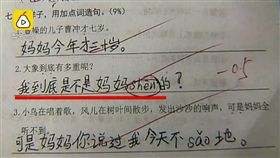 子，用加点词造句。(9%)
操的儿子曹冲才七岁。
妈妈今年才三十岁。
2.大象到底有多重呢？
我到底是不是妈妈shēn的？ -0.5
3.小鸟在唱着歌，风儿在树叶间散步，发出沙沙的响声，可是妈妈全
听不到
可是妈妈你说过我今天不sǎo地。